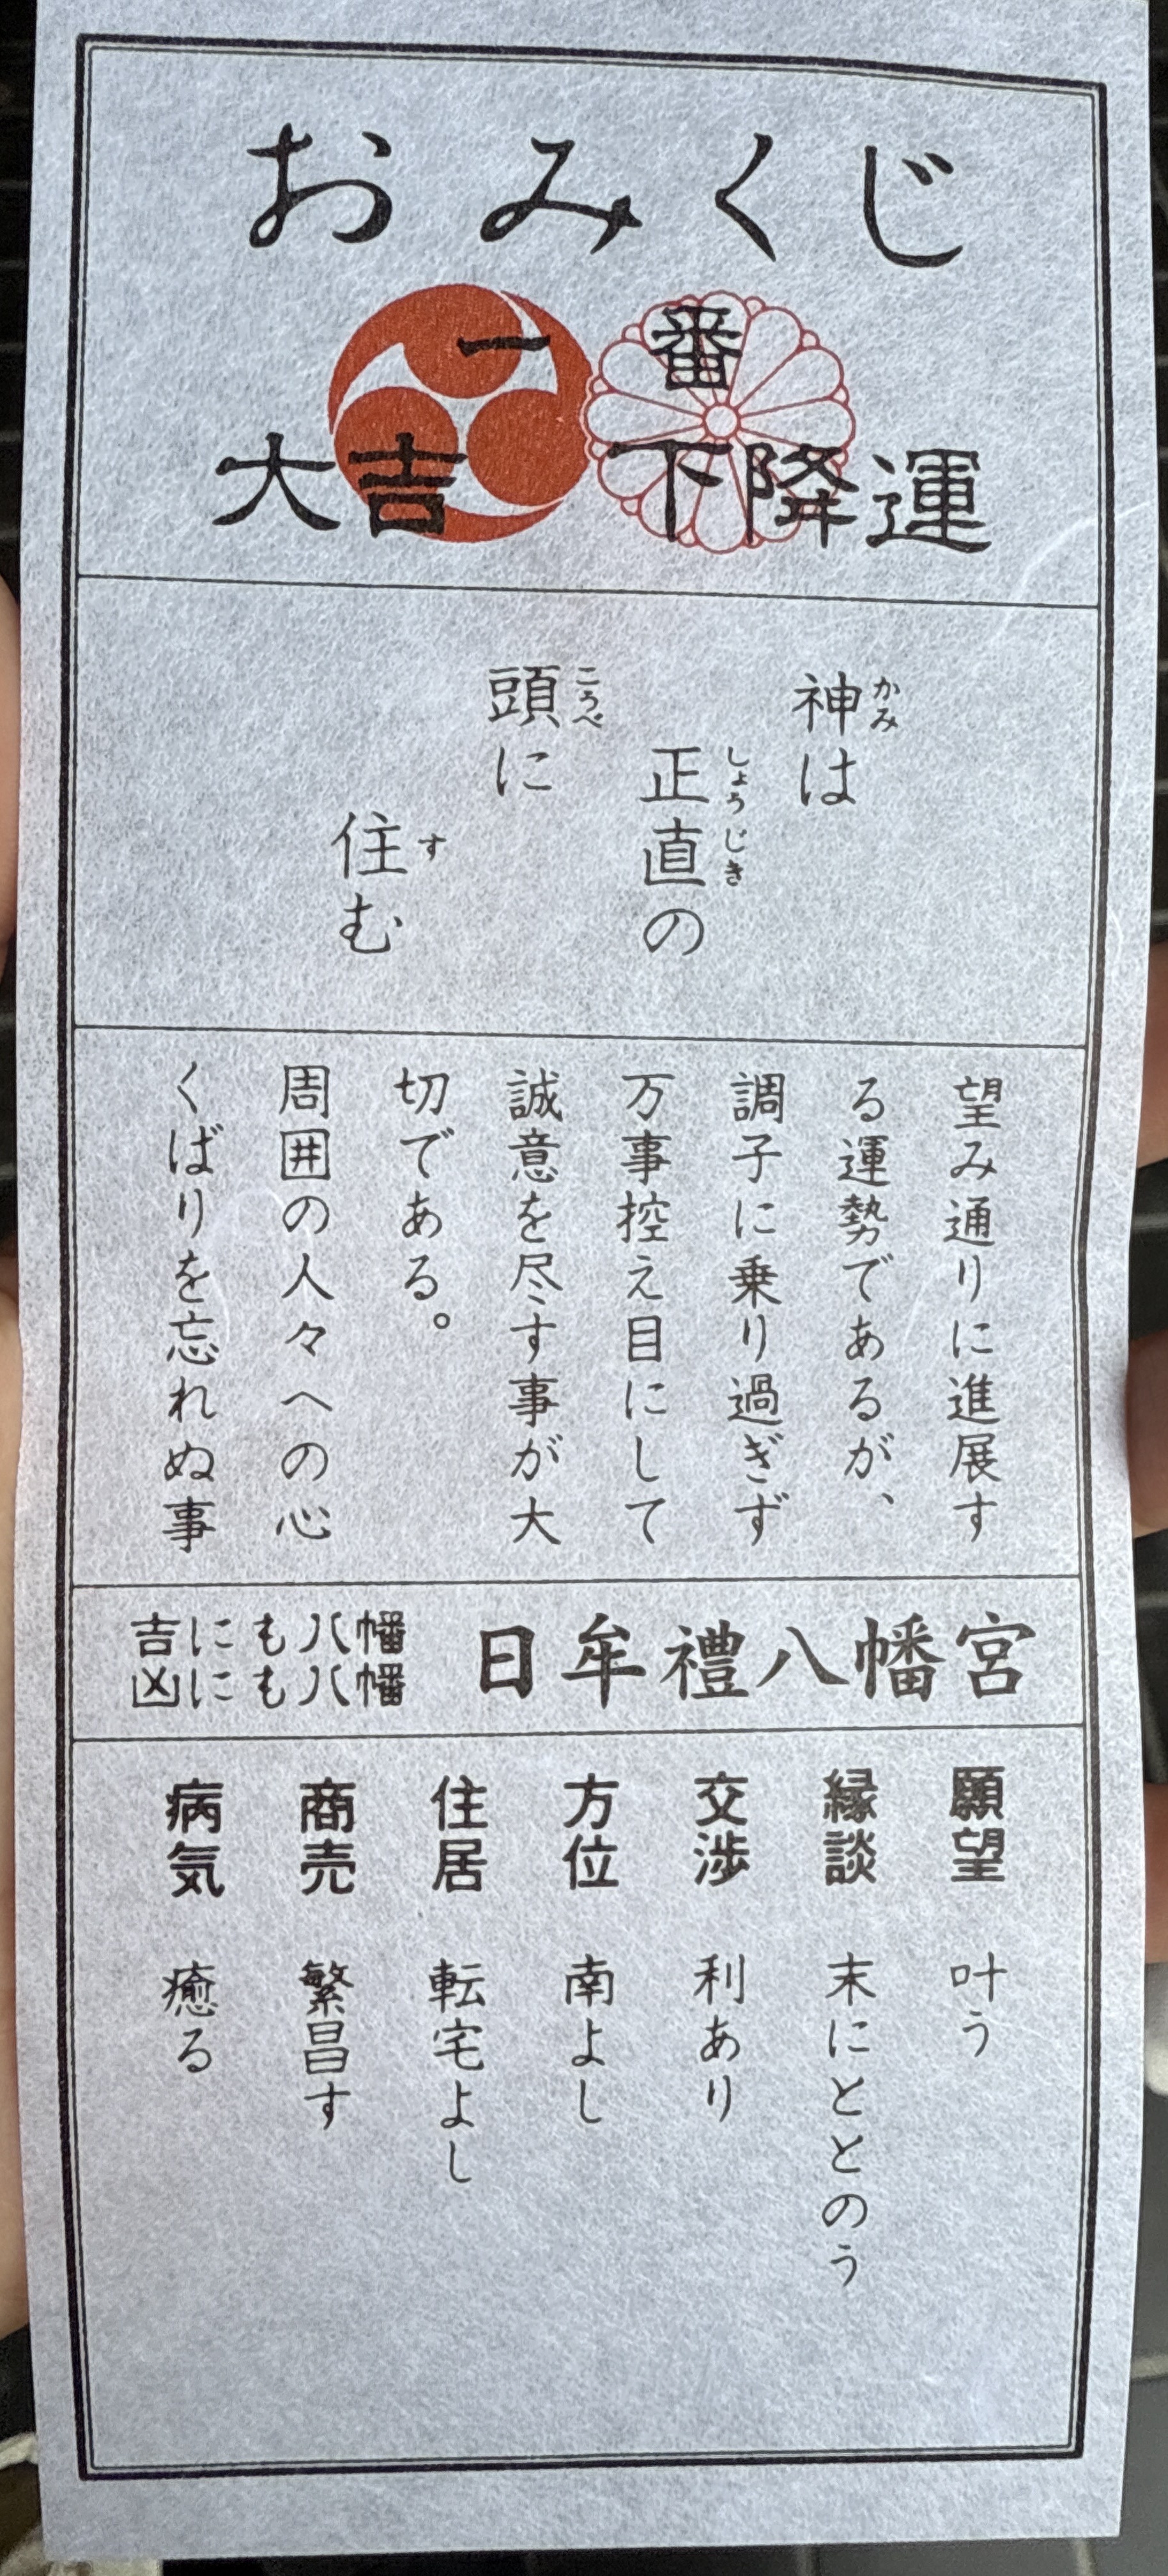 おみくじ
一番
大吉 下降運
神は
かみ
正直の
しょうじき
頭に
こうべ
住む
す
望み通りに進展す
る運勢であるが、
調子に乗り過ぎず
万事控え目にして
誠意を尽す事が大
切である。
周囲の人々への心
くばりを忘れぬ事
吉にも八幡
凶にも八幡
日牟禮八幡宮
願望 叶う
縁談 末にととのう
交渉 利あり
方位 南よし
住居 転宅よし
商売 繁昌す
病気 癒る